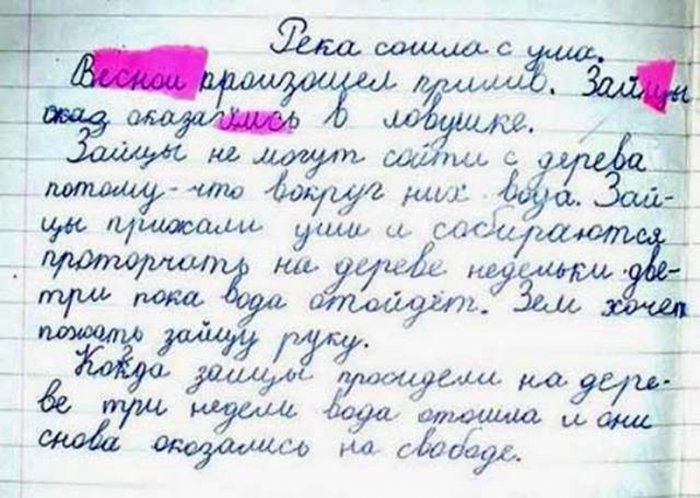 Река сошла с ума.
Весной произошел прилив. Зайцы
оказ оказались в ловушке.
Зайцы не могут сойти с дерева
потому-что вокруг них вода. Зай-
цы прижали уши и собираются
проторчать на дереве недельки две-
три пока вода отойдёт. Зем хочет
пожать зайцу руку.
Когда зайцы просидели на дере-
ве три недели вода отошла и они
снова оказались на свободе.